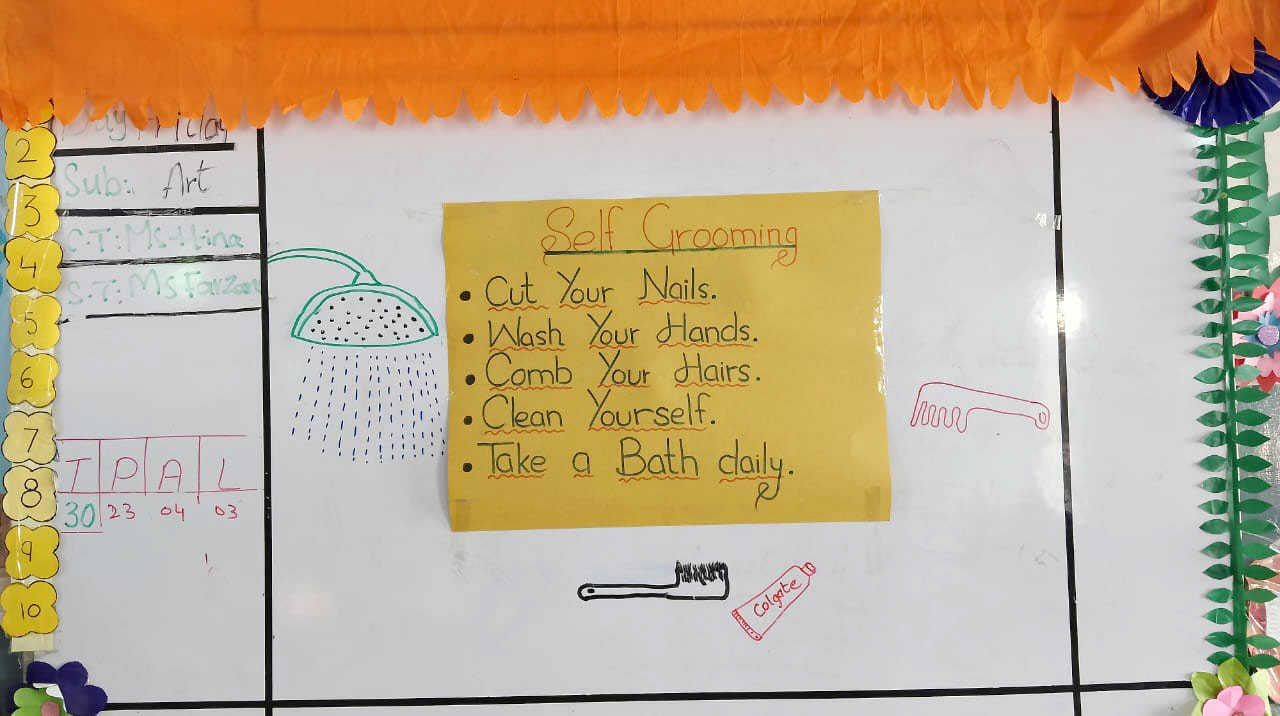 2
3
4
5
6
7
8
9
10
Day: Friday
Sub: Art
C.T: Ms Hina
S.T: Ms
T P A L
30 23 04 03
Self Grooming
• Cut Your Nails.
• Wash Your Hands.
• Comb Your Hairs.
• Clean Yourself.
• Take a Bath daily.
Colgate